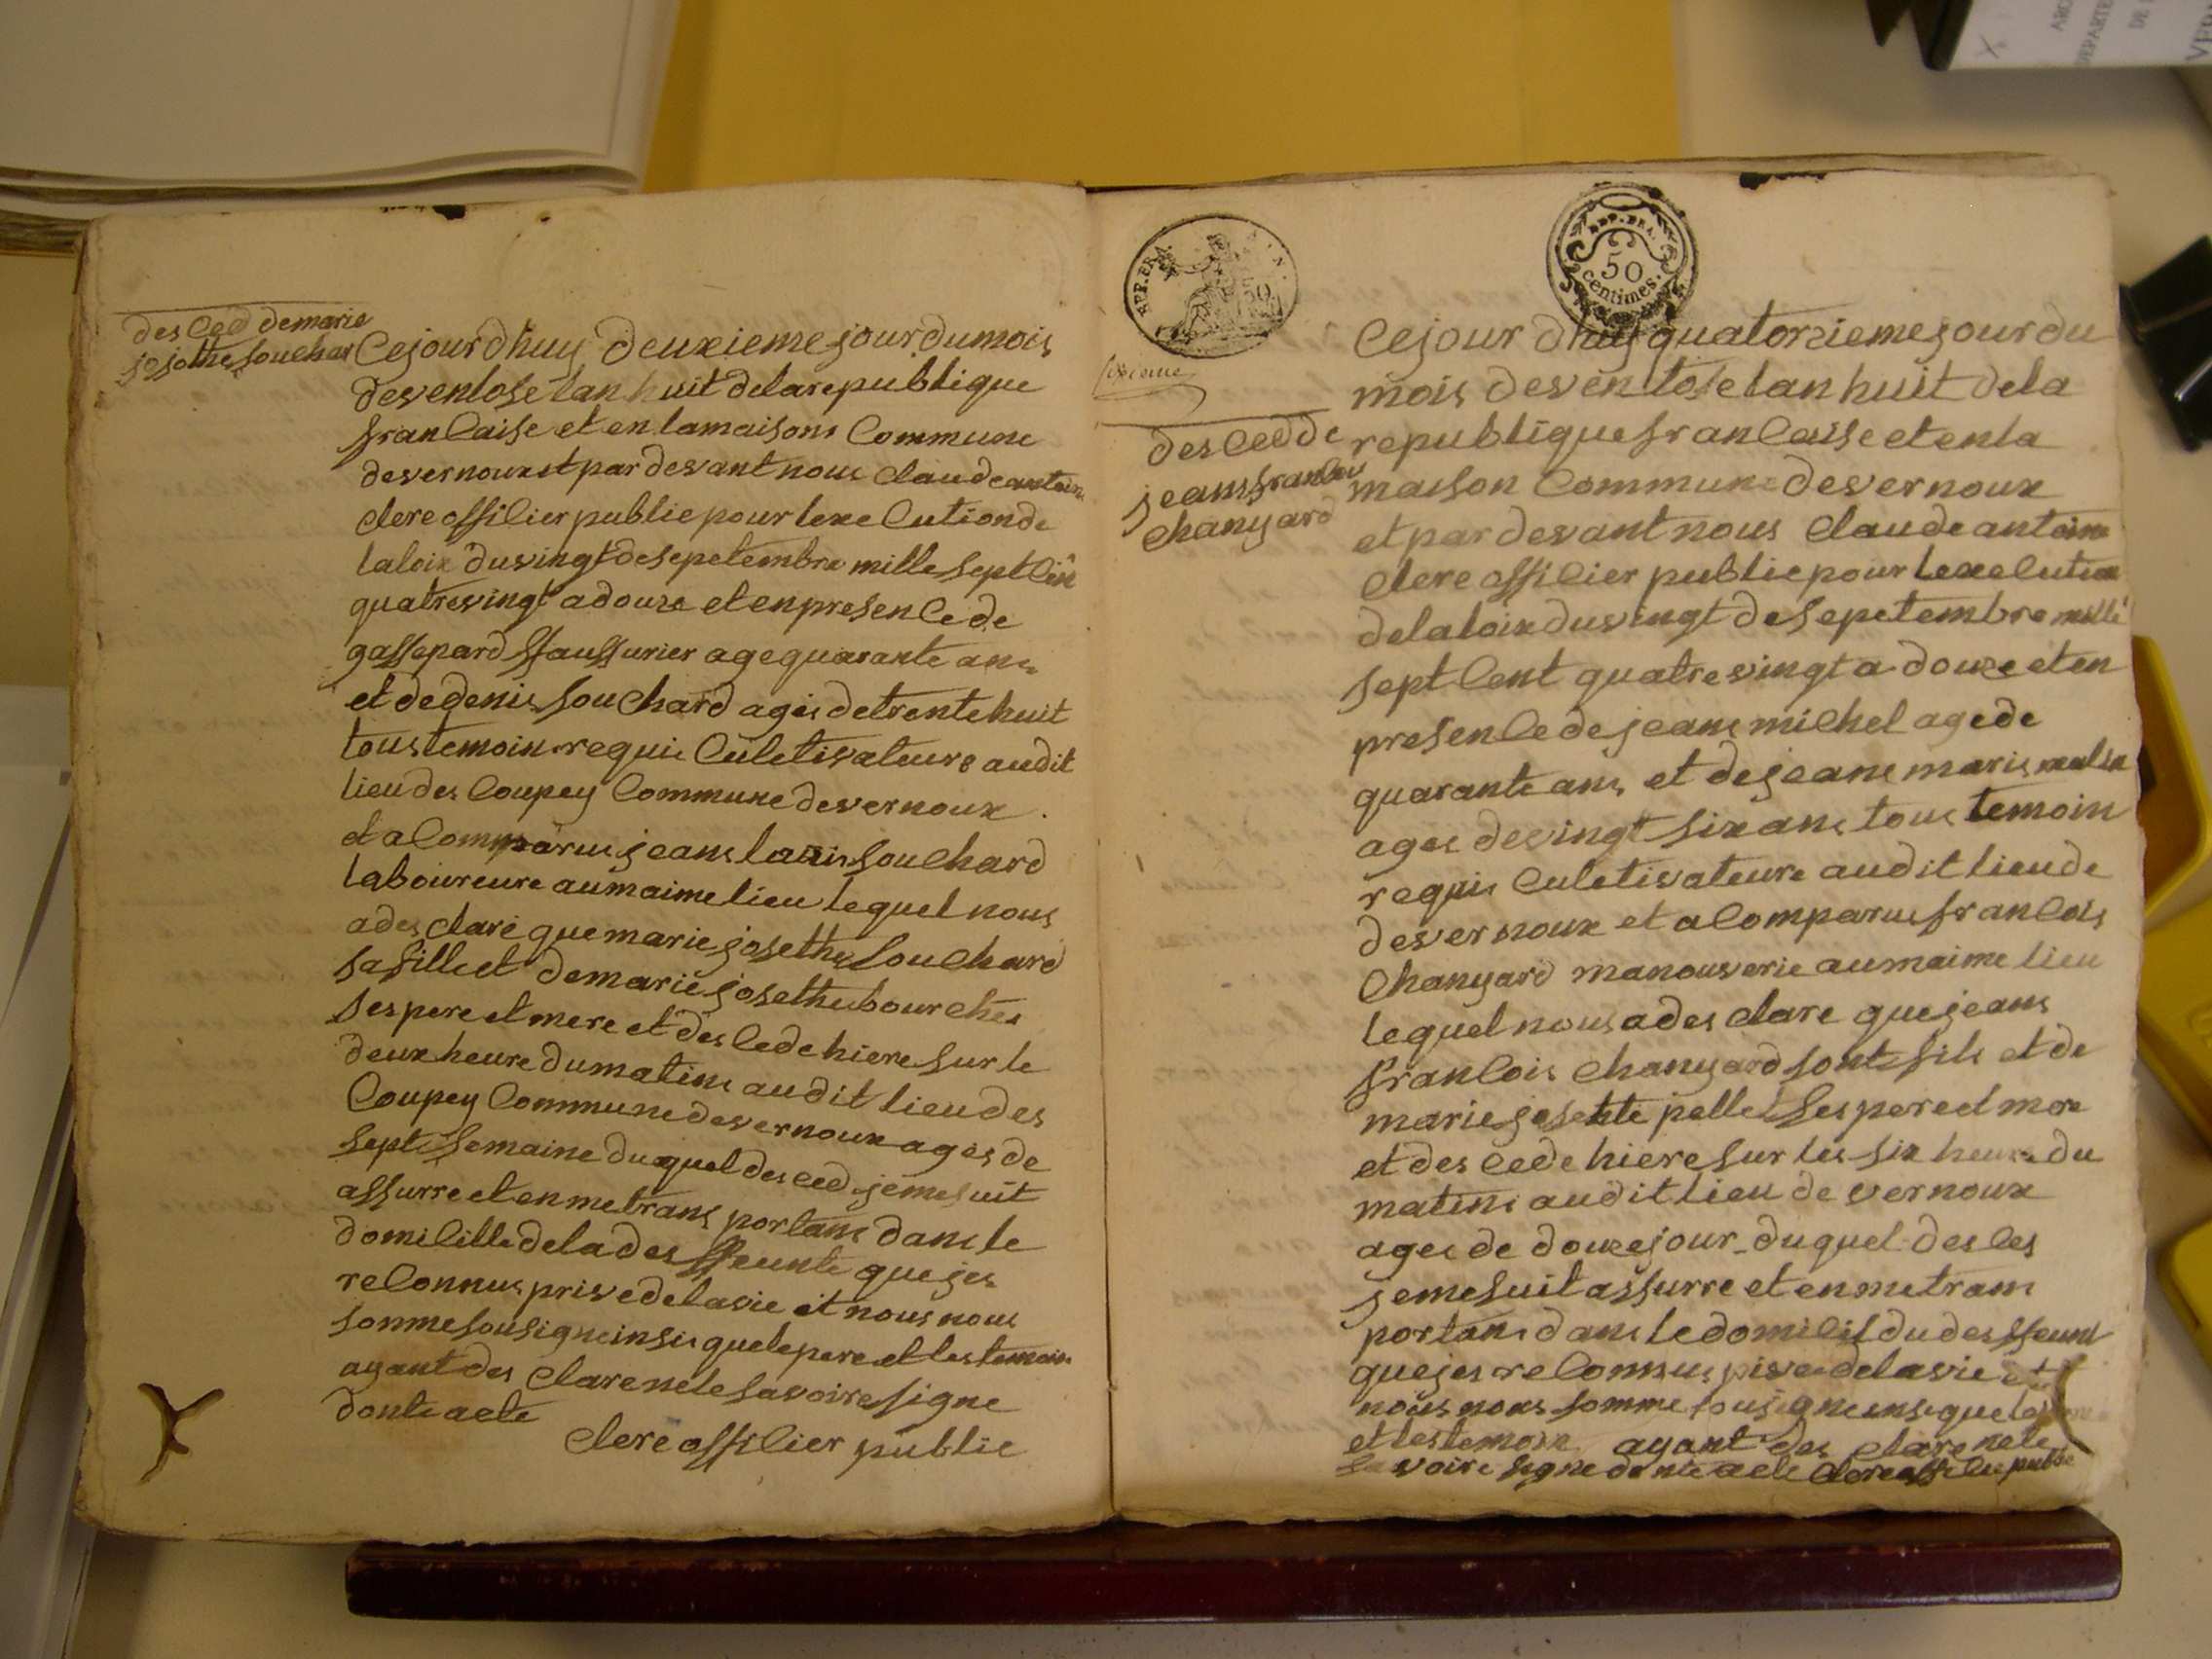 des Ced demarie
jojothe Souchar
Cejourdhuy deuxieme jour dumois
desventose lan huit delarepublique
franCaise et en lamaisons Commune
devernoux et par devant nous Claude antoine
Clere offiCier publie pour lexeCution de
laloix duvingt desepetembre mille sept Cên
quatrevingt adouze et enpresenCe de
gassepard ffaussurier age quarante ans
et de denis SouChard ages detrente huit
tous temoin requis Culetivateurs audit
lieu des Coupey Commune devernoux
et a Comparus jeans louis SouChard
laboureure aumaime lieu lequel nous
a des Clare que marie josethe SouChard
sa fille et demarie josethe bourChes
ses pere et mere et des Cede hiere sur le
deux heure dumatins audit lieu des
Coupey Commune devernoux ages de
sept Semaine duquel des Ced jeme suit
assurre et en me trans portans dans le
domiCille de la des ffeunte que jes
reConnus privé delavie et nous nous
somme sousigne insis que le pere et les temoin
ayant des Clare nete savoire signe
donte acte
Clere offiCier publie
REP.FRA.
50
REP.FRA.
50
Centimes.
sixieme
des Ced de
jeans franCois
Chanyard
Cejour dhuy quatorzieme jour du
mois desventose lan huit dela
republique franCaise et en la
maison Commune devernoux
et par devant nous Claude antoine
Clere offiCier publie pour lexeCution
delaloix duvingt de sepetembre mille
sept Cent quatre vingt a douze et en
presenCe de jeans miChel age de
quarante ans et de jeans maris
ages devingt six ans tous temoin
requis Culetivateure audit lieu de
devernoux et a Comparus franCois
Chanyard manouverie aumaime lieu
lequel nous a des Clare que jeans
franCois Chanyard sont fils et de
marie josethe pellet ses pere et mere
et des Cede hiere sur les six heure du
matins audit lieu de vernoux
ages de douze jour duquel des Ces
jeme suit assurre et en me trans
portans dans le domiCil du des ffeunt
que jes reConnus prive delavie et
nous nous somme sousigne inse que le pere
et les temoin ayant des Clare nete
savoire signe donte acte Clere offiCie publie